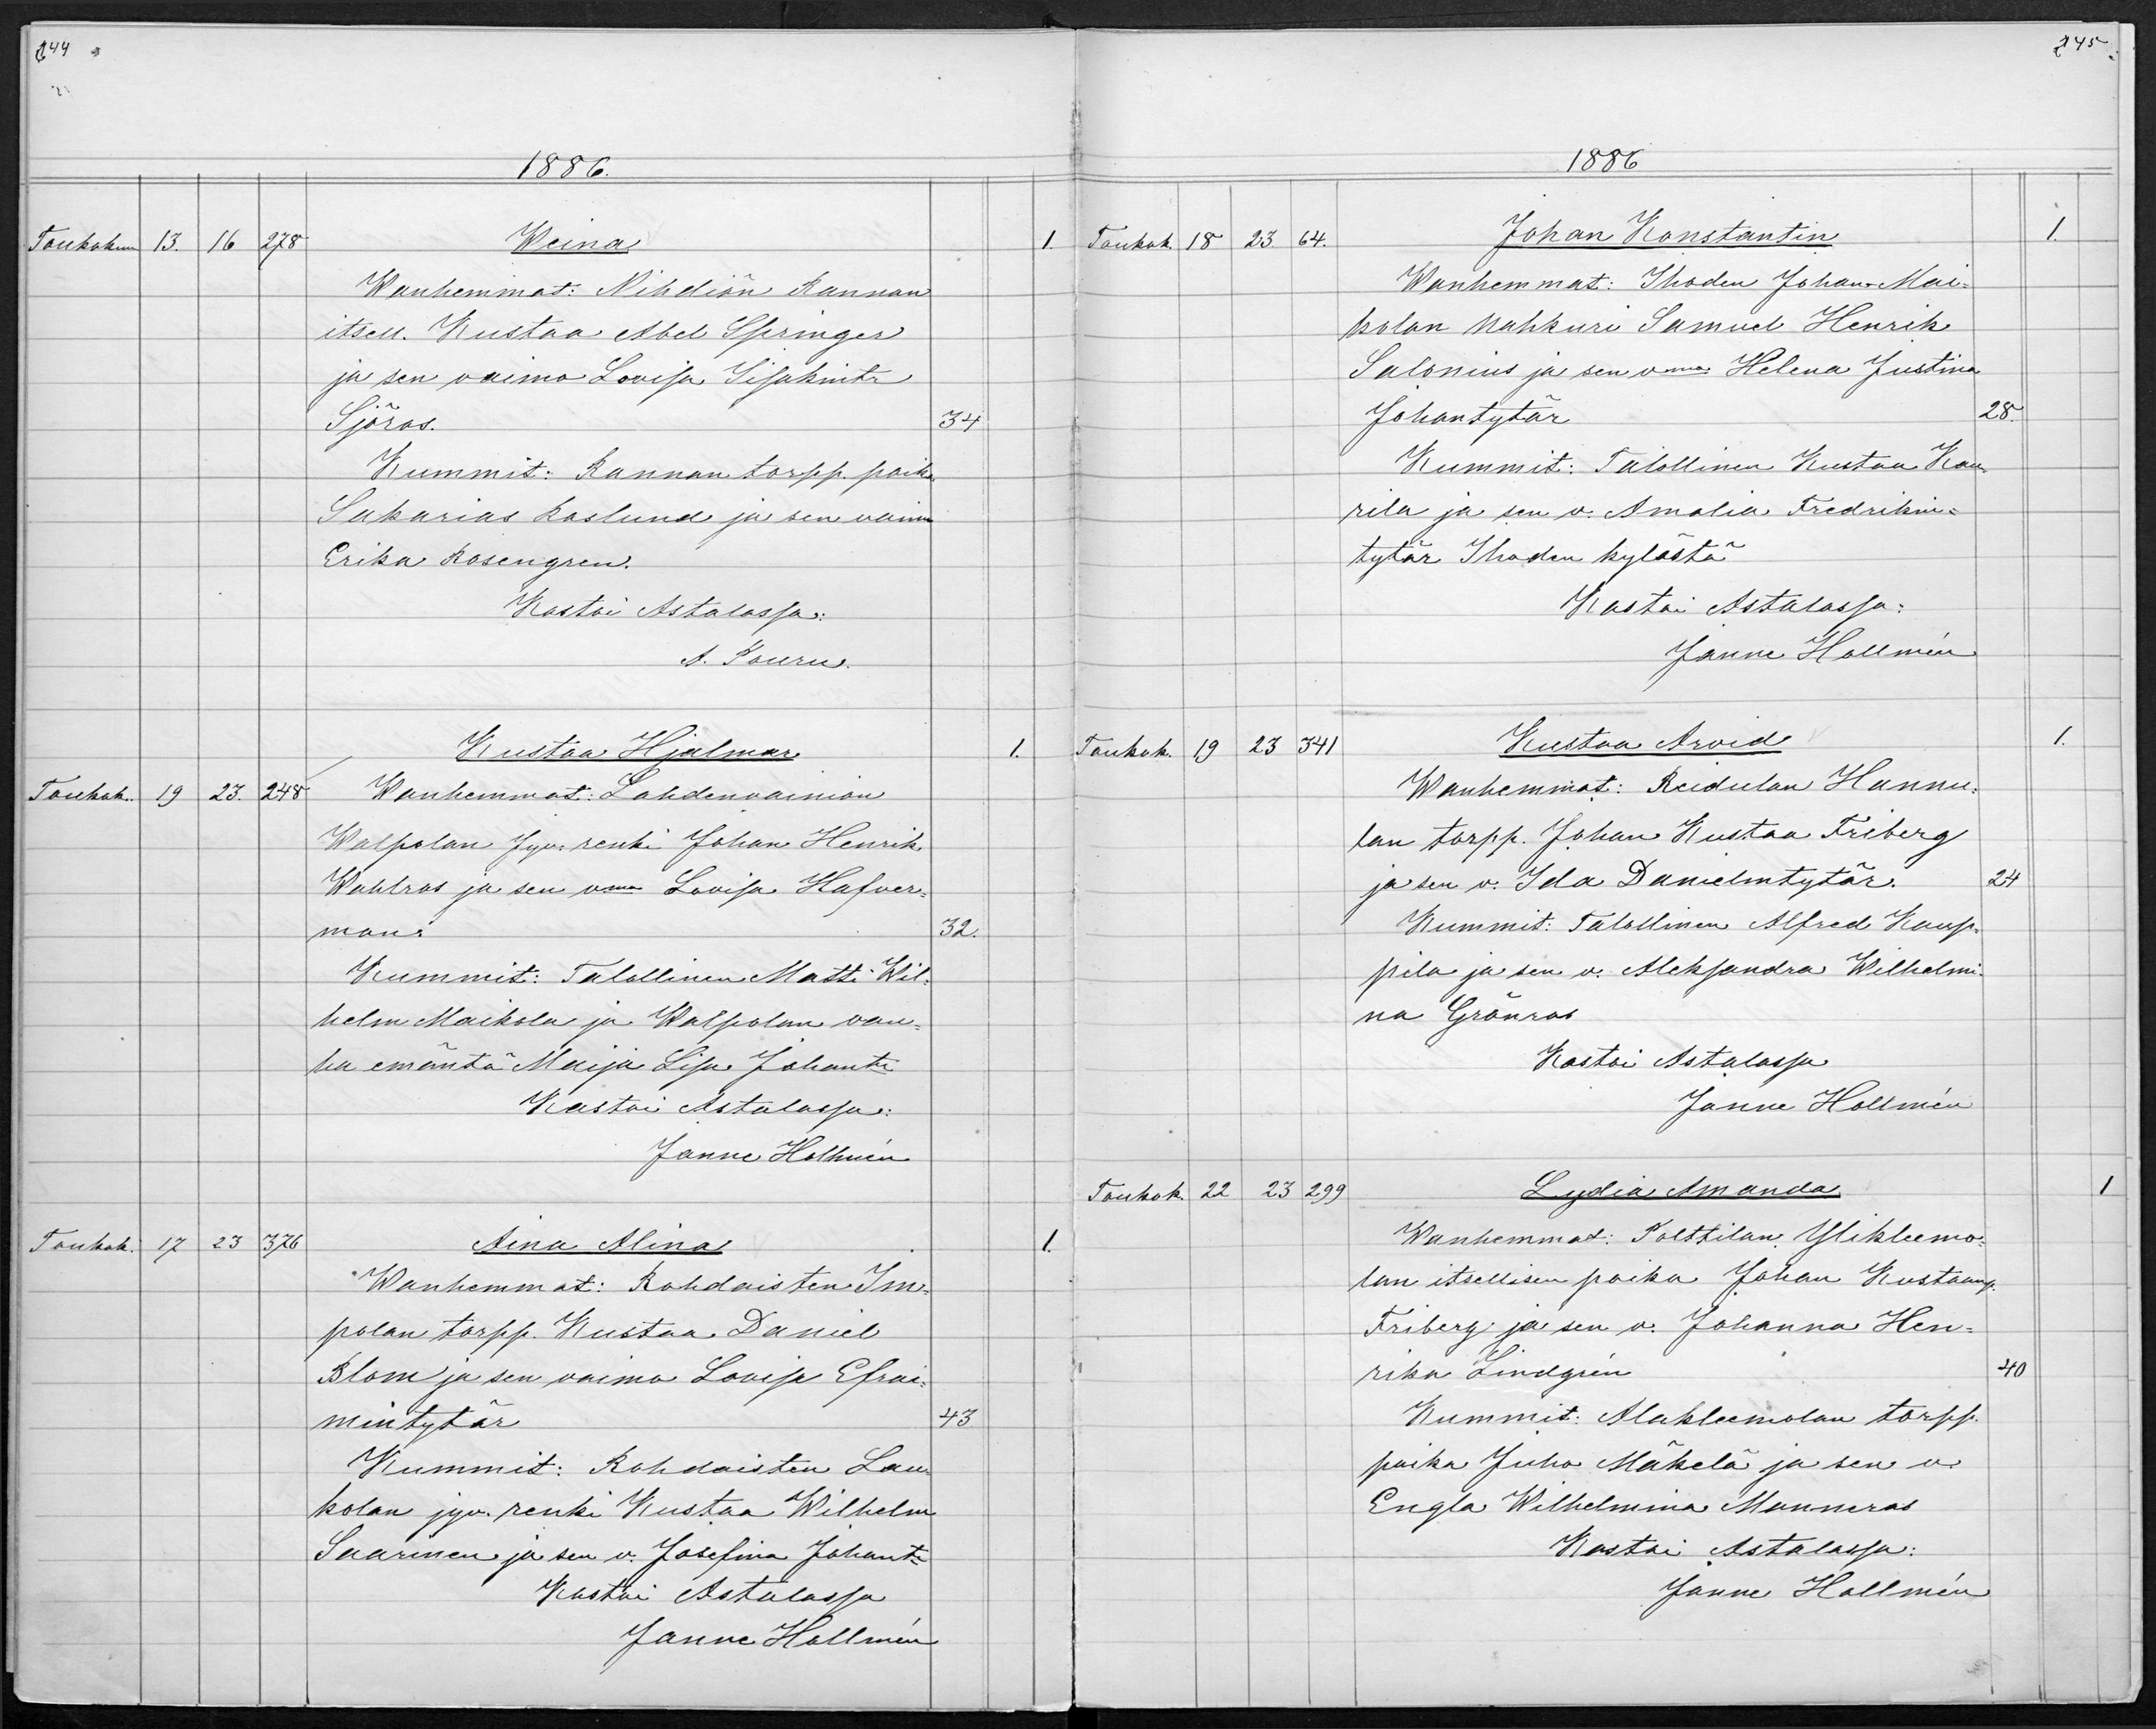 244
1886.
Toukokuu 13. 16 278 Weina 1.
Wanhemmat: Nihdiön Rannan
itsell. Kustaa Abel Springer
ja sen vaimo Lovisa Isakintr
Sjöros. 34
Kummit: Rannan torpp. poika
Sakarias Roslund ja sen vaimo
Erika Rosengren.
Kastoi Astalassa:
A. Pouru.
Kustaa Hjalmar 1.
Toukok. 19 23. 248 Wanhemmat: Lahdenvainion
Walpolan jyv. renki Johan Henrik
Wahlros ja sen vmo Lovisa Hafver=
man. 32.
Kummit: Talollinen Matti Wil=
helm Maikola ja Walpolan van=
ha emäntä Maija Lisa Johantr
Kastoi Astalassa:
Janne Hollmén
Toukok. 17 23 376 Aina Alina 1.
Wanhemmat: Rohdaisten Im=
polan torpp. Kustaa Daniel
Blom ja sen vaimo Lovisa Efrai=
mintytär 43
Kummit: Rohdaisten Lau=
kolan jyv. renki Kustaa Wilhelm
Saarinen ja sen v. Josefina Johantr
Kastoi Astalassa
Janne Hollmén
245
1886
Toukok. 18 23 64. Johan Konstantin 1.
Wanhemmat: Ihoden Johan-Mai=
kolan nahkuri Samuel Henrik
Salonius ja sen vmo Helena Justina
Johantytär 28.
Kummit: Talollinen Kustaa Kau=
rila ja sen v. Amalia Fredrikin=
tytär Ihoden kylästä
Kastoi Astalassa:
Janne Hollmén
Toukok. 19 23 341 Kustaa Arvid 1.
Wanhemmat: Reidulan Hannu=
lan torpp. Johan Kustaa Friberg
ja sen v. Ida Danielintytär. 24
Kummit: Talollinen Alfred Kaup=
pila ja sen v. Aleksandra Wilhelmi=
na Grönros
Kastoi Astalassa
Janne Hollmén
Toukok. 22 23 299 Lydia Amanda 1
Wanhemmat: Polttilan Ylikleemo=
lan itsellisen poika Johan Kustaanp.
Friberg ja sen v. Johanna Hen=
rika Lindgrén 40
Kummit: Alakleemolan torpp.
poika Juho Mäkelä ja sen v.
Engla Wilhelmina Manneros
Kastoi Astalassa:
Janne Hollmén